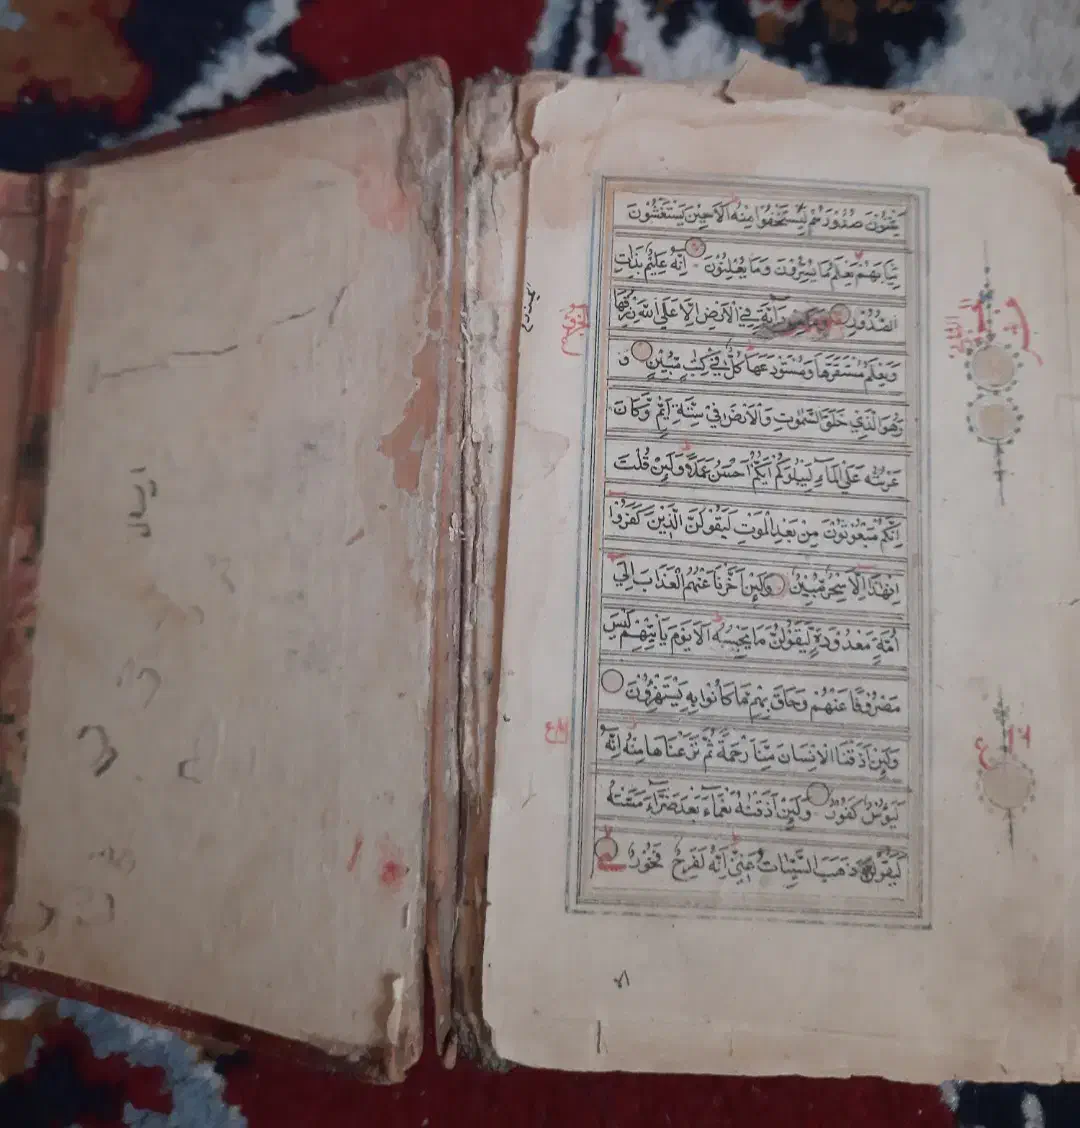 يَثْنُوْنَ صُدُوْرَهُمْ لِيَسْتَخْفُوْا مِنْهُ اَلَا حِيْنَ يَسْتَغْشُوْنَ
ثِيَابَهُمْ يَعْلَمُ مَا يُسِرُّوْنَ وَمَا يُعْلِنُوْنَ اِنَّهُ عَلِيْمٌ بِذَاتِ
الصُّدُوْرِ وَمَا مِنْ دَآبَّةٍ فِي الْاَرْضِ اِلَّا عَلَي اللّٰهِ رِزْقُهَا
وَيَعْلَمُ مُسْتَقَرَّهَا وَمُسْتَوْدَعَهَا كُلٌّ فِيْ كِتٰبٍ مُّبِيْنٍ
وَهُوَ الَّذِيْ خَلَقَ السَّمٰوٰتِ وَالْاَرْضَ فِيْ سِتَّةِ اَيَّامٍ وَّكَانَ
عَرْشُهُ عَلَي الْمَآءِ لِيَبْلُوَكُمْ اَيُّكُمْ اَحْسَنُ عَمَلًا وَلَئِنْ قُلْتَ
اِنَّكُمْ مَبْعُوْثُوْنَ مِنْ بَعْدِ الْمَوْتِ لَيَقُوْلَنَّ الَّذِيْنَ كَفَرُوْا
اِنْ هٰذَا اِلَّا سِحْرٌ مُّبِيْنٌ وَلَئِنْ اَخَّرْنَا عَنْهُمُ الْعَذَابَ اِلٰي
اُمَّةٍ مَعْدُوْدَةٍ لَيَقُوْلُنَّ مَا يَحْبِسُهُ اَلَا يَوْمَ يَأْتِيْهِمْ لَيْسَ
مَصْرُوْفًا عَنْهُمْ وَحَاقَ بِهِمْ مَا كَانُوْا بِهِ يَسْتَهْزِؤُنَ
وَلَئِنْ اَذَقْنَا الْاِنْسَانَ مِنَّا رَحْمَةً ثُمَّ نَزَعْنَاهَا مِنْهُ اِنَّهُ
لَيَؤُسٌ كَفُوْرٌ وَلَئِنْ اَذَقْنٰهُ نَعْمَآءَ بَعْدَ ضَرَّآءَ مَسَّتْهُ
لَيَقُوْلَنَّ ذَهَبَ السَّيِّئَاتُ عَنِّيْ اِنَّهُ لَفَرِحٌ فَخُوْرٌ